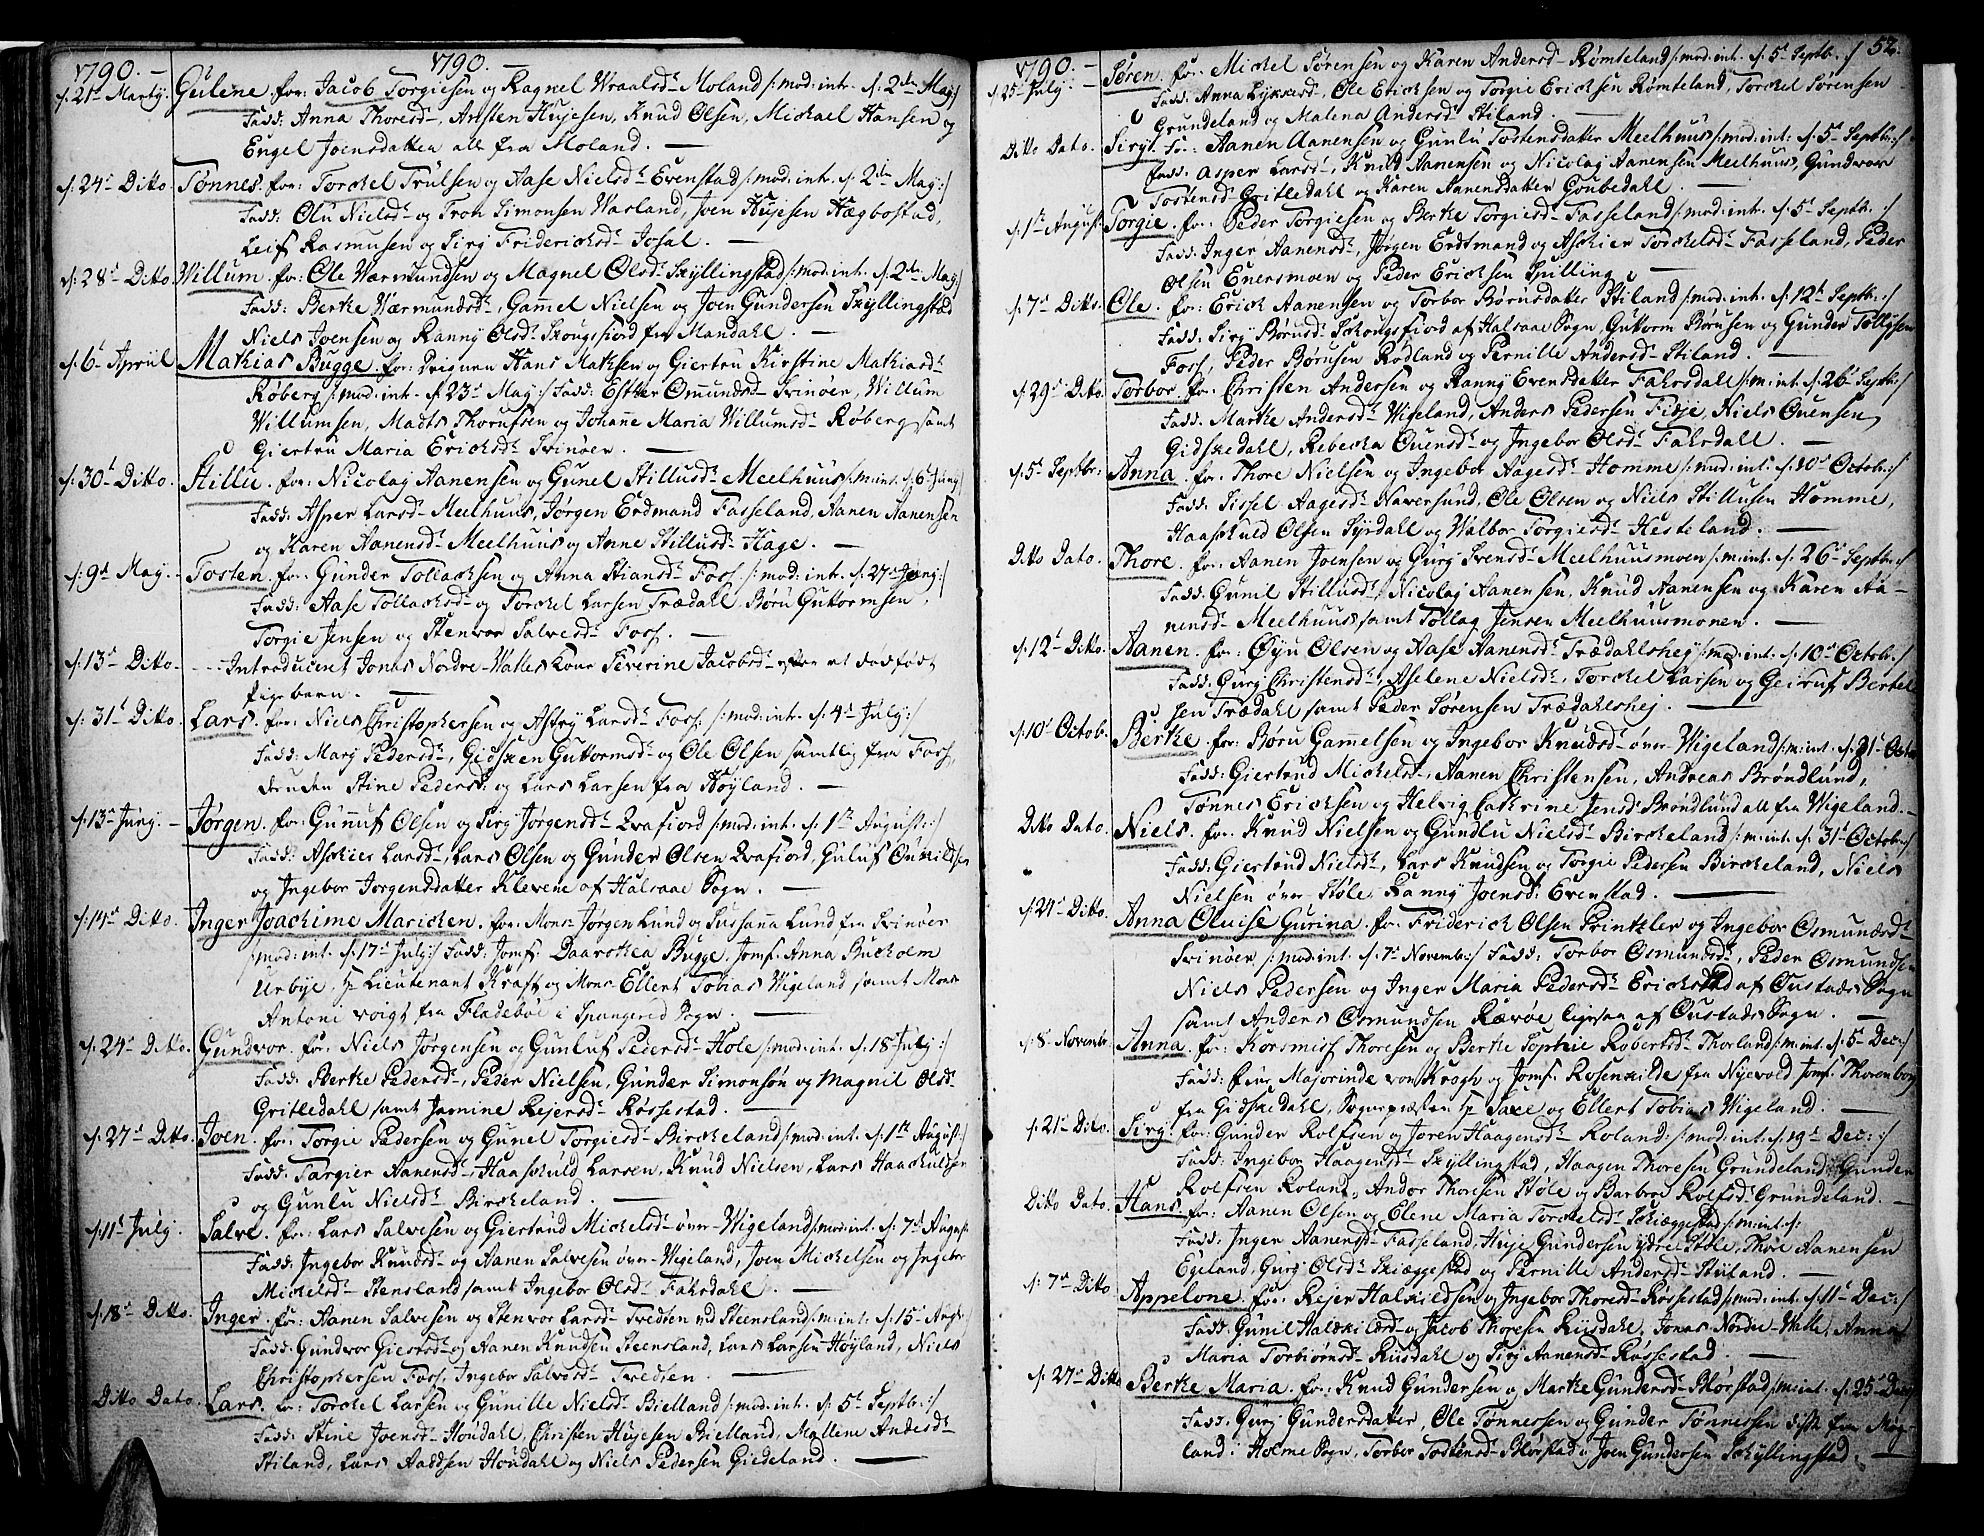 1790. — 1790. —
d: 21de Martij. Gulene. for: Jacob Torgiesen og Ragnel Wraalsdr Moland /: mod: intr. d: 2den Maj :/
Fadd: Anna Thoresdr, Arften Hujesen, Knud Olsen, Mickael Hansen og
Engel Joensdatter all fra Moland. —
d: 24de Ditto Tønnes. for: Torckel Trulsen og Aase Nielsdr Evenstad /: mod: intr. d: 2den Maj :/
Fadd: Olu Nielsdr og Tron Simonsen Warland, Joen Hujesen Hægbostad,
Leif Rasmusen og Sirj Fridericksdr Josal. —
d: 28de Ditto Willum. for: Ole Wærmundsen og Magnel Olsdr Schyllingstad /: mod: int. d: 2den Maj :/
Fadd: Berte Wærmundsdr, Gamel Nielsen og Joen Gundersen Schyllingstad
Niels Joensen og Ranny Olsdr Skougsfiord fra Mandahl. —
d: 6te Apriil Mathias Bugge. for: Hans Mathsen og Giertru Kirstine Mathiasdr
Røberg /: mod: int. d: 23de Maj :/ Fadd: Esther Omundsdr Svinøer, Willum
Willumsen, Madts Thorufsen og Johanne Maria Willumsdr Røberg samt
Giertru Maria Ericksdr Svinøer. —
d: 30te Ditto. Stillu. for: Nicolay Aanensen og Gunel Stillusdr Meelhuus /: m: int. d: 6te Junj :/
Fadd: Asper Larsdr Meelhuus, Jørgen Erdmand Fasseland, Aanen Aanensen
og Karen Aanensdr Meelhuus og Anne Stillusdr Hage. —
d: 9de Maj. Tosten. for: Gunder Tollacksen og Anna Stiansdr Foss. /: mod: int. d: 27de Junj :/
Fadd: Aase Tollacksdr og Torckel Larsen Trædahl Børu Guttormsen,
Torgie Jensen og Stenvor Salvesdr Foss. —
d: 13de Ditto. - - - Introduceret Jonas Nordre-Walles Kone Severine Jacobsdr efter et dødfødt
pigebarn. —
d: 31te Ditto. Lars. for: Niels Christophersen og Astrj Larsdr Foss. /: mod: int. d: 4de Julj :/
Fadd: Marj Pedersdr, Gidsken Guttormsdr og Ole Olsen samtlig fra Foss,
desuden Stine Pedersdr og Lars Larsen fra Høyland. —
d: 13de Junj. — Jørgen. for: Gunuf Olsen og Sirj Jørgensdr Qvafiord /: mod: int. d: 1ste August :/
Fadd: Askier Larsdr, Lars Olsen og Gunder Olsen Qvafiord, Guluf
og Ingebor Jørgensdatter Klevene af Halsaae Sogn. —
d: 14de Ditto. Inger Joachime Maricken. for: Monr Jørgen Lund og Susanna Lund fra Svinøer
/: mod: int. d: 17de Julj :/ Fadd: Jomf: Daarthea Bugge, Jomf: Anna Bucholm
Urbye, Hr Lieutenant Kraft og Monr Ellert Tobias Wigeland samt Monr
Antoni voigt fra Fladebøe i Spangered Sogn. —
d: 24de Ditto. Gundvor. for: Niels Jørgensen og Gunluf Pedersdr Hole /: mod: int. d: 18de Julj :/
Fadd: Berte Pedersdr, Peder Nielsen, Gunder Simonsøn og Magnil Olsdr
Gritledahl samt Jasmine Rejersdr Røssestad. —
d: 27de Ditto. Joen. for: Torgie Pedersen og Gunel Torgiesdr Birckeland /: mod: int. d: 1ste August :/
Fadd: Targier Aanensdr Haaskuld Larsen, Knud Nielsen, Lars Haaskuldsen
og Gunlu Nielsdr Birckeland. —
d: 11te Julj. Salve. for: Lars Salvesen og Giertrud Mickelsdr øver-Wigeland /: mod: int. d: 7de August :/
Fadd: Ingebor Knudsdr og Aanen Salvesen øver-Wigeland, Joen Mickelsen og Ingebor
Mickelsdr Stensland samt Ingebor Olsdr Fahrsdahl. —
d: 18de Ditto. Inger. for: Aanen Salvesen og Stenvor Larsdr Tvedten ved Steensland /: m: int. d: 15de Aug: :/
Fadd: Gundvor Giertsdr og Aanen Knudsen Steensland, Lars Larsen Høyland, Niels
Christophersen Foss, Ingebor Salvesdr Tvedten. —
Ditto Dato. Lars. for: Torckel Larsen og Gunille Nielsdr Bielland /: mod: int. d: 5te Septbr :/
Fadd: Stine Joensdr Houdahl, Christen Hujesen Bielland, Mallene Andersdr
Stiland, Lars Aadsen Houdahl og Niels Pedersen Giedeland. —
1790. — 52.
d: 25de Julj. Søren. for: Mickel Sørensen og Karen Andersdr Rømteland /: mod: int. d: 5te Septb: :/
Fadd: Anna Lyckesdr, Ole Ericksen og Torgie Ericksen Rømteland, Torckel Sørensen
Grundeland og Malena Andersdr Stiland. —
Ditto Dato. Sirj. for: Aanen Aanensen og Gunlu Tostensdatter Meelhuus /: mod: int. d: 5te Septb: :/
Fadd: Asper Larsdr, Knud Aanensen og Nicolay Aanensen Meelhuus, Gundvor
Tostensdr Gritledahl og Karen Aanensdatter Goubedahl. —
d: 1ste August Torgie. for: Peder Torgiesen og Berte Torgiesdr Fasseland /: mod: int. d: 5te Septb: :/
Fadd: Inger Aanensdr, Jørgen Erdtmand og Askier Torckelsdr Fasseland, Peder
Olsen Enersmoen og Peder Ericksen Spilling. —
d: 7de Ditto. Ole. for: Erick Aanensen og Torbor Børusdatter Stiland /: mod: int. d: 12te Septb: :/
Fadd: Sirj Børusdr Schougsfiord af Halsaae Sogn, Guttorm Børusen og Gunder Tollissen
Foss, Peder Børusen Rødland og Pernille Andersdr Stiland. —
d: 29de Ditto. Torbor. for: Christen Andersen og Ranny Evensdatter Fahrsdal /: m: int. d: 26de Septb: :/
Fadd: Marthe Andersdr Wigeland, Anders Pedersen Fidje, Niels Ouensen
Gidskedahl, Rebecka Ouensdr og Ingebor Olsdr Fahrsdall. —
d: 5te Septbr: Anna. for: Thore Nielsen og Ingebor Aagesdr Homme /: mod: int. d: 10de Octob: :/
Fadd: Sissel Aagesdr Haversund, Ole Olsen og Niels Stillusen Homme,
Haaskuld Olsen Syrdahl og Walbor Torgiesdr Hesteland. —
Ditto Dato. Thore. for: Aanen Joensen og Gurj Svensdr Meelhuusmoen /: m: int. d: 26de Septb: :/
Fadd: Gunil Stillusdr, Nicolay Aanensen, Knud Aanensen og Karen Aa-
nensdr Meelhuus samt Tollag Jensen Meelhuusmonen. —
d: 12te Ditto. Aanen. for: Øyu Olsen og Aase Aanensdr Trædahlshej /: mod: int. d: 10de Octob: :/
Fadd: Gurj Christensdr, Aselene Nielsdr, Torckel Larsen og Geiruf Bertel-
sen Trædahl samt Peder Sørensen Trædahlshej. —
d: 10de Octob. Berte. for: Børu Gamelsen og Ingebor Knudsdr øver Wigeland /: m: int. d: 31te Octob
Fadd: Giertrud Mickelsdr, Aanen Christensen, Andreas Brøndlund,
Tønnes Ericksen og Helvig Cathrine Jensdr Brøndlund all fra Wigeland. —
Ditto Dato. Niels. for: Knud Nielsen og Gundlu Nielsdr Birckeland /: m: int. d: 31te Octob: :/
Fadd: Giertrud Nielsdr, Lars Knudsen og Torgie Pedersen Birckeland, Niels
Nielsen øver Støle, Ranny Joensdr Evenstad. —
d: 24de Ditto. Anna Oluise Gurina. for: Friderick Olsen Printzler og Ingebor Osmundsdr
Svinøer /: mod: int. d: 7de Novembr: :/ Fadd: Torbor Osmundsdr, Peder Osmundsen
Niels Pedersen og Inger Maria Pedersdr Erickstad af Oustads Sogn
samt Anders Osmundsen Rævøe ligesaa af Oustads Sogn. —
d: 8de Novembr. Anna. for: Korsmoss Thoresen og Berte Sophie Robertsdr Thorland /: m: int. d: 5te Dec: :/
Fadd: frue Majorinde von Krogh og Jomf: Rosenkilde fra Nyevold Jomf: Thorenborg
fra Gidskedahl, Sognepræsten Hr Saxe og Ellert Tobias Wigeland. —
d: 21de Dito. Sirj. for: Gunder Rolfsen og Joren Haagensdr Roland /: mod: int. d: 19de Dec: :/
Fadd: Ingebor Haagensdr Schyllingstad, Haagen Thoresen Grundeland, Gunder
Rolfsen Roland, Andor Thoresen Støle og Barbro Rolfsdr Grundeland. —
Ditto Dato. Hans. for: Aanen Olsen og Elene Maria Torckelsdr Schiæggestad /: m: int. d:
Fadd: Inger Aanensdr Fasseland, Huje Gundersen ydre Støle, Thore Aanensen
Egeland, Gurj Olsdr Schiæggestad og Pernille Andersdr Stiland. —
d: 7de Ditto Appelone. for: Rejer Halkildsen og Ingebor Thoresdr Røssestad /: mod: int. d: 11te Dec: :/
Fadd: Gunil Halkildsdr og Jacob Thoresen Rijsdahl, Jonas Nordre-Walle, Anna
Maria Torbiørnsdr Riisdahl og Sirj Aanensdr Røssestad. —
d: 27de Ditto Berte Maria. for: Knud Gundersen og Marthe Gundersdr Skørstad /: m: int. d: 25de Dec:
Fadd: Gurj Gundersdatter, Ole Tønnessen og Gunder Tønnessen disse fra Møg-
land i Holme Sogn, Torbor Tostensdr Skørstad og Joen Gundersen Schyllingstad. —